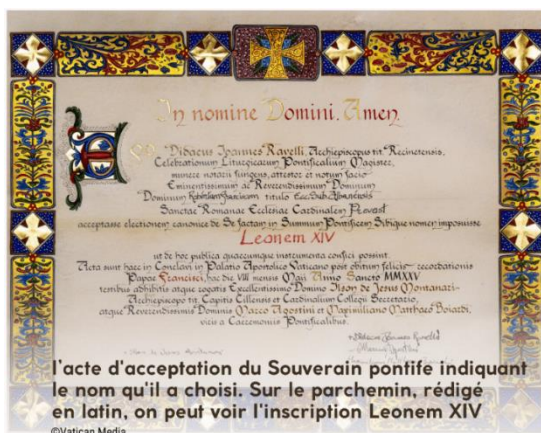 In nomine Domini. Amen.
Ego Didacus Ioannes Ravelli, Archiepiscopus tit. Recinetensis,
Celebrationum Liturgicarum Pontificalium Magister,
munere notarii fungens, attestor et notum facio
Eminentissimum ac Reverendissimum Dominum
Dominum Franciscum titulo
Sanctae Romanae Ecclesiae Cardinalem Prevost
acceptasse electionem canonice de Se factam in Summum Pontificem Sibique nomen imposuisse
Leonem XIV
ut de hoc publica quaecumque instrumenta confici possint.
Acta sunt haec in Conclavi in Palatio Apostolico Vaticano post obitum felicis recordationis
Papae Francisci, hac die VIII mensis Maii Anno Sancto MMXXV
testibus adhibitis atque rogatis Excellentissimo Domino Ilson de Jesus Montanari
Archiepiscopo tit. Capitis Cillensis et Cardinalium Collegii Secretario,
atque Reverendissimis Dominis Marco Agostini et Maximiliano Matthaeo Boiardi,
viris a Caeremoniis Pontificalibus.
l'acte d'acceptation du Souverain pontife indiquant
le nom qu'il a choisi. Sur le parchemin, rédigé
en latin, on peut voir l'inscription Leonem XIV
©Vatican Media